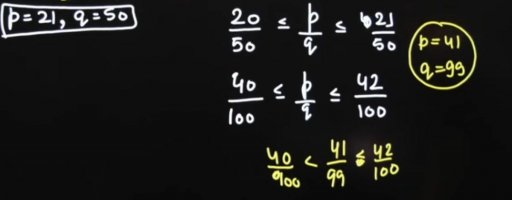 p=21, q=50
20/50 ≤ p/q ≤ 21/50
p=41
q=99
40/100 ≤ p/q ≤ 42/100
40/100 < 41/99 ≤ 42/100